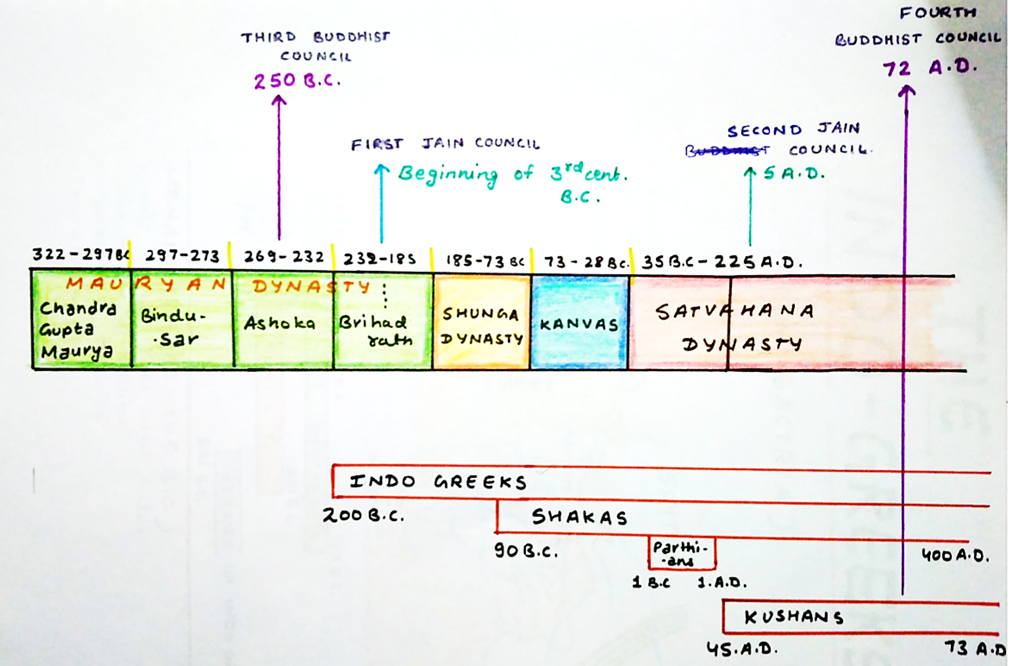 FOURTH
BUDDHIST COUNCIL
72 A.D.
THIRD BUDDHIST
COUNCIL
250 B.C.
FIRST JAIN COUNCIL
Beginning of 3rd cent.
B.C.
SECOND JAIN
BUDDHIST COUNCIL.
5 A.D.
322-297BC 297-273 269-232 232-185 185-73 BC 73-28BC. 35B.C-225A.D.
MAURYAN DYNASTY
Chandra
Gupta
Maurya
Bindu-
-sar
Ashoka
Brihad
rath
SHUNGA
DYNASTY
KANVAS
SATVAHANA
DYNASTY
INDO GREEKS
200 B.C.
SHAKAS
90 B.C.
400 A.D.
Parthi-
-ans
1 B.C 1.A.D.
KUSHANS
45.A.D. 73 A.D